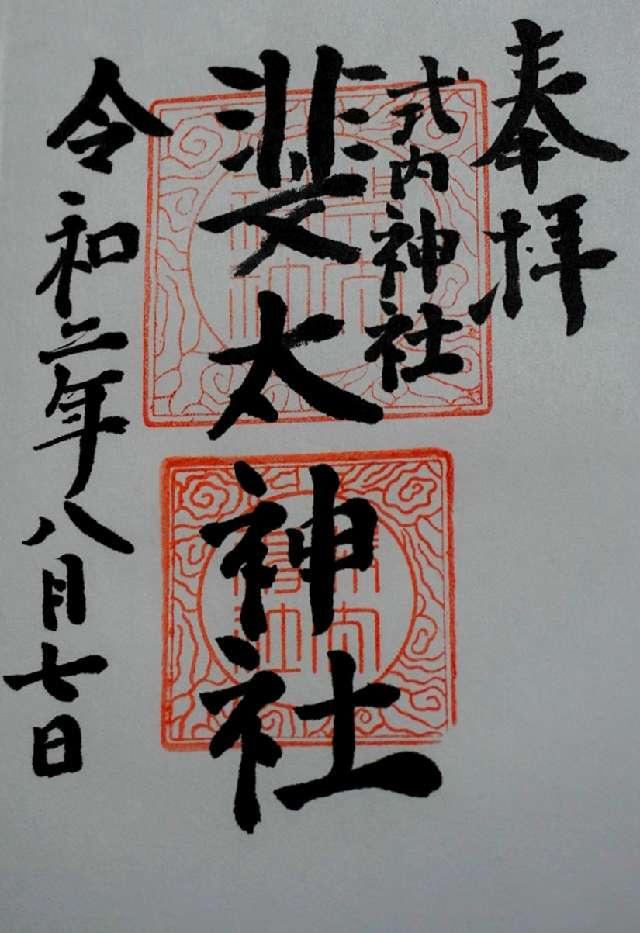 奉拝
式内神社
斐太神社
令和二年八月七日